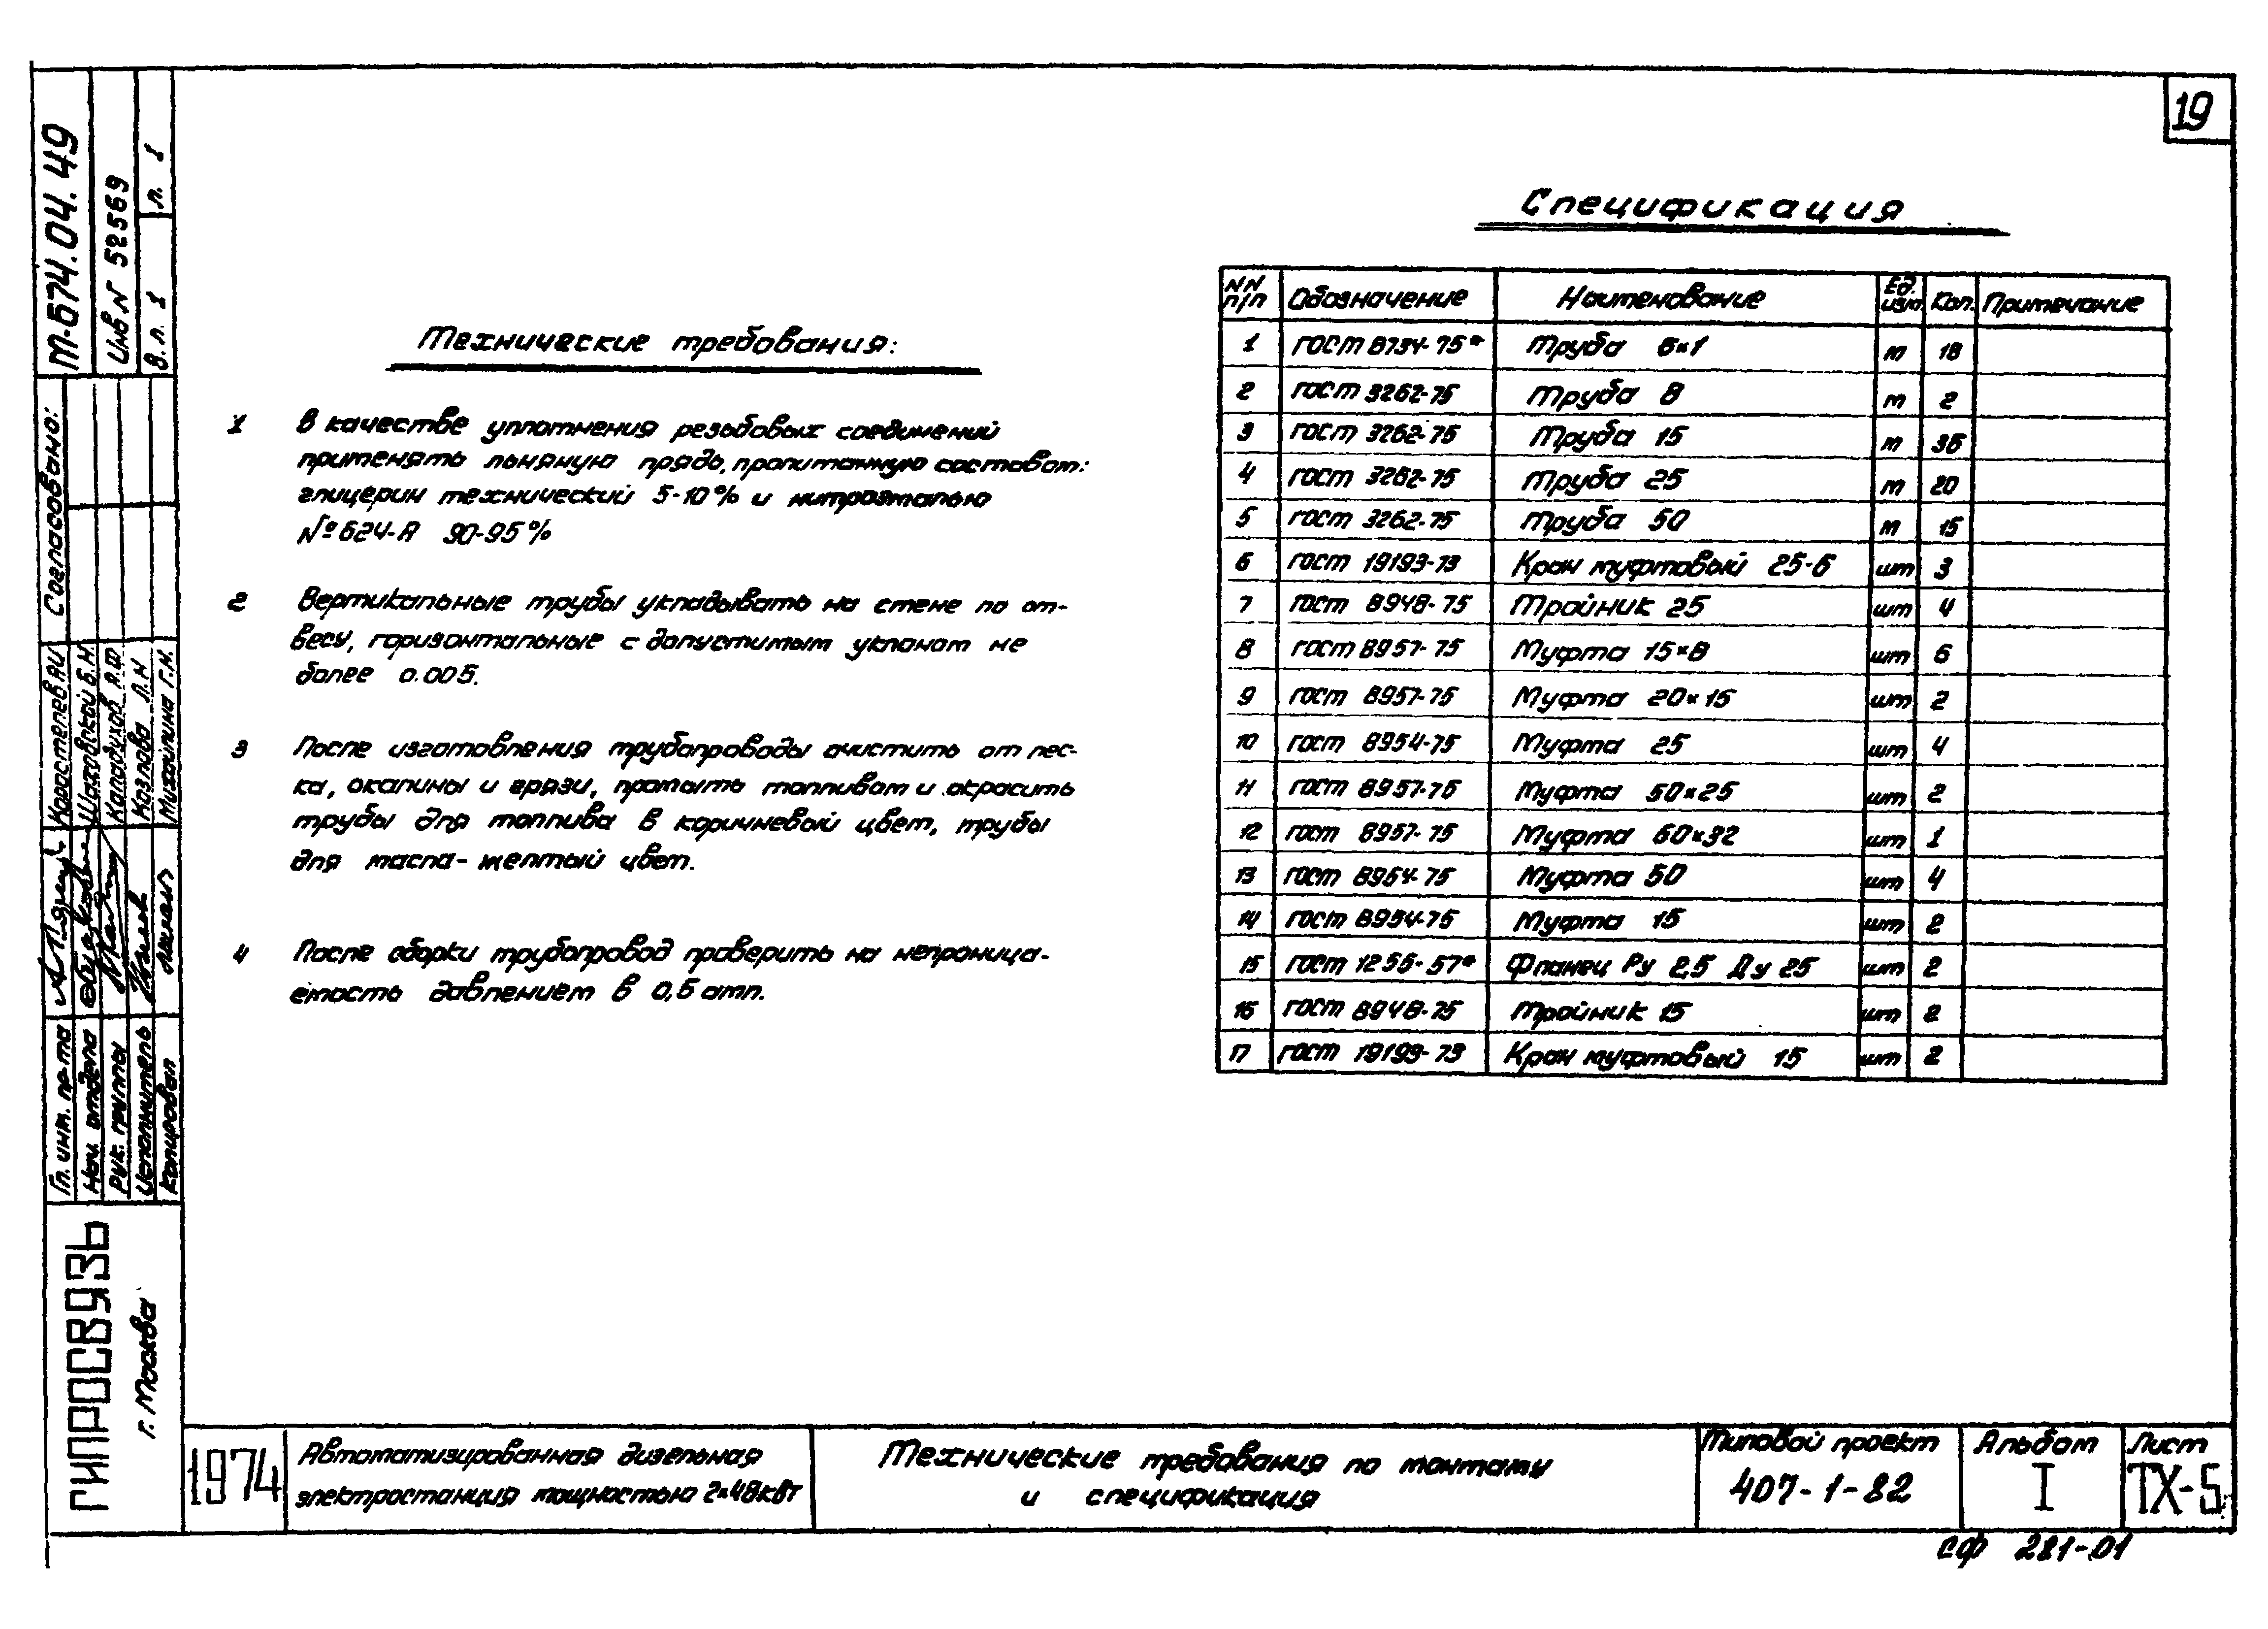 19
М-674.04.49
Инв.N 52569
В.л. 1 л. 1
Согласовано:
Коростелев А.И.
Шаховской Б.Н.
Козлова Л.Н
Михайлина Г.И.
Гл. инж. пр-та
Нач. отдела
Рук. группы
Исполнитель
Копировал
ГИПРОСВЯЗЬ
г. Москва
Технические требования:
1 В качестве уплотнения резьбовых соединений
применять льняную прядь, пропитанную составом:
глицерин технический 5-10% и нитроэмалью
№624-А 90-95%
2 Вертикальные трубы укладывать на стене по от-
весу, горизонтальные с допустимым уклоном не
более 0.005.
3 После изготовления трубопроводы очистить от пес-
ка, окалины и грязи, промыть топливом и окрасить
трубы для топлива в коричневый цвет, трубы
для масла - желтый цвет.
4 После сборки трубопровод проверить на непроница-
емость давлением в 0,5 атм.
Спецификация
NN п/п Обозначение Наименование Ед. изм. Кол. Примечание
1 ГОСТ 8734-75* Труба 6×1 м 18
2 ГОСТ 3262-75 Труба 8 м 2
3 ГОСТ 3262-75 Труба 15 м 36
4 ГОСТ 3262-75 Труба 25 м 20
5 ГОСТ 3262-75 Труба 50 м 15
6 ГОСТ 19193-73 Кран муфтовый 25-6 шт 3
7 ГОСТ 8948-75 Тройник 25 шт 4
8 ГОСТ 8957-75 Муфта 15×8 шт 6
9 ГОСТ 8957-75 Муфта 20×15 шт 2
10 ГОСТ 8954-75 Муфта 25 шт 4
11 ГОСТ 8957-75 Муфта 50×25 шт 2
12 ГОСТ 8957-75 Муфта 50×32 шт 1
13 ГОСТ 8954-75 Муфта 50 шт 4
14 ГОСТ 8954-75 Муфта 15 шт 2
15 ГОСТ 1255-57* Фланец Ру 2,5 Ду 25 шт 2
16 ГОСТ 8948-75 Тройник 15 шт 2
17 ГОСТ 19193-73 Кран муфтовый 15 шт 2
1974
Автоматизированная дизельная
электростанция мощностью 2×48кВт
Технические требования по монтажу
и спецификация
Типовой проект
407-1-82
Альбом
I
Лист
ТХ-5
СФ 281-01